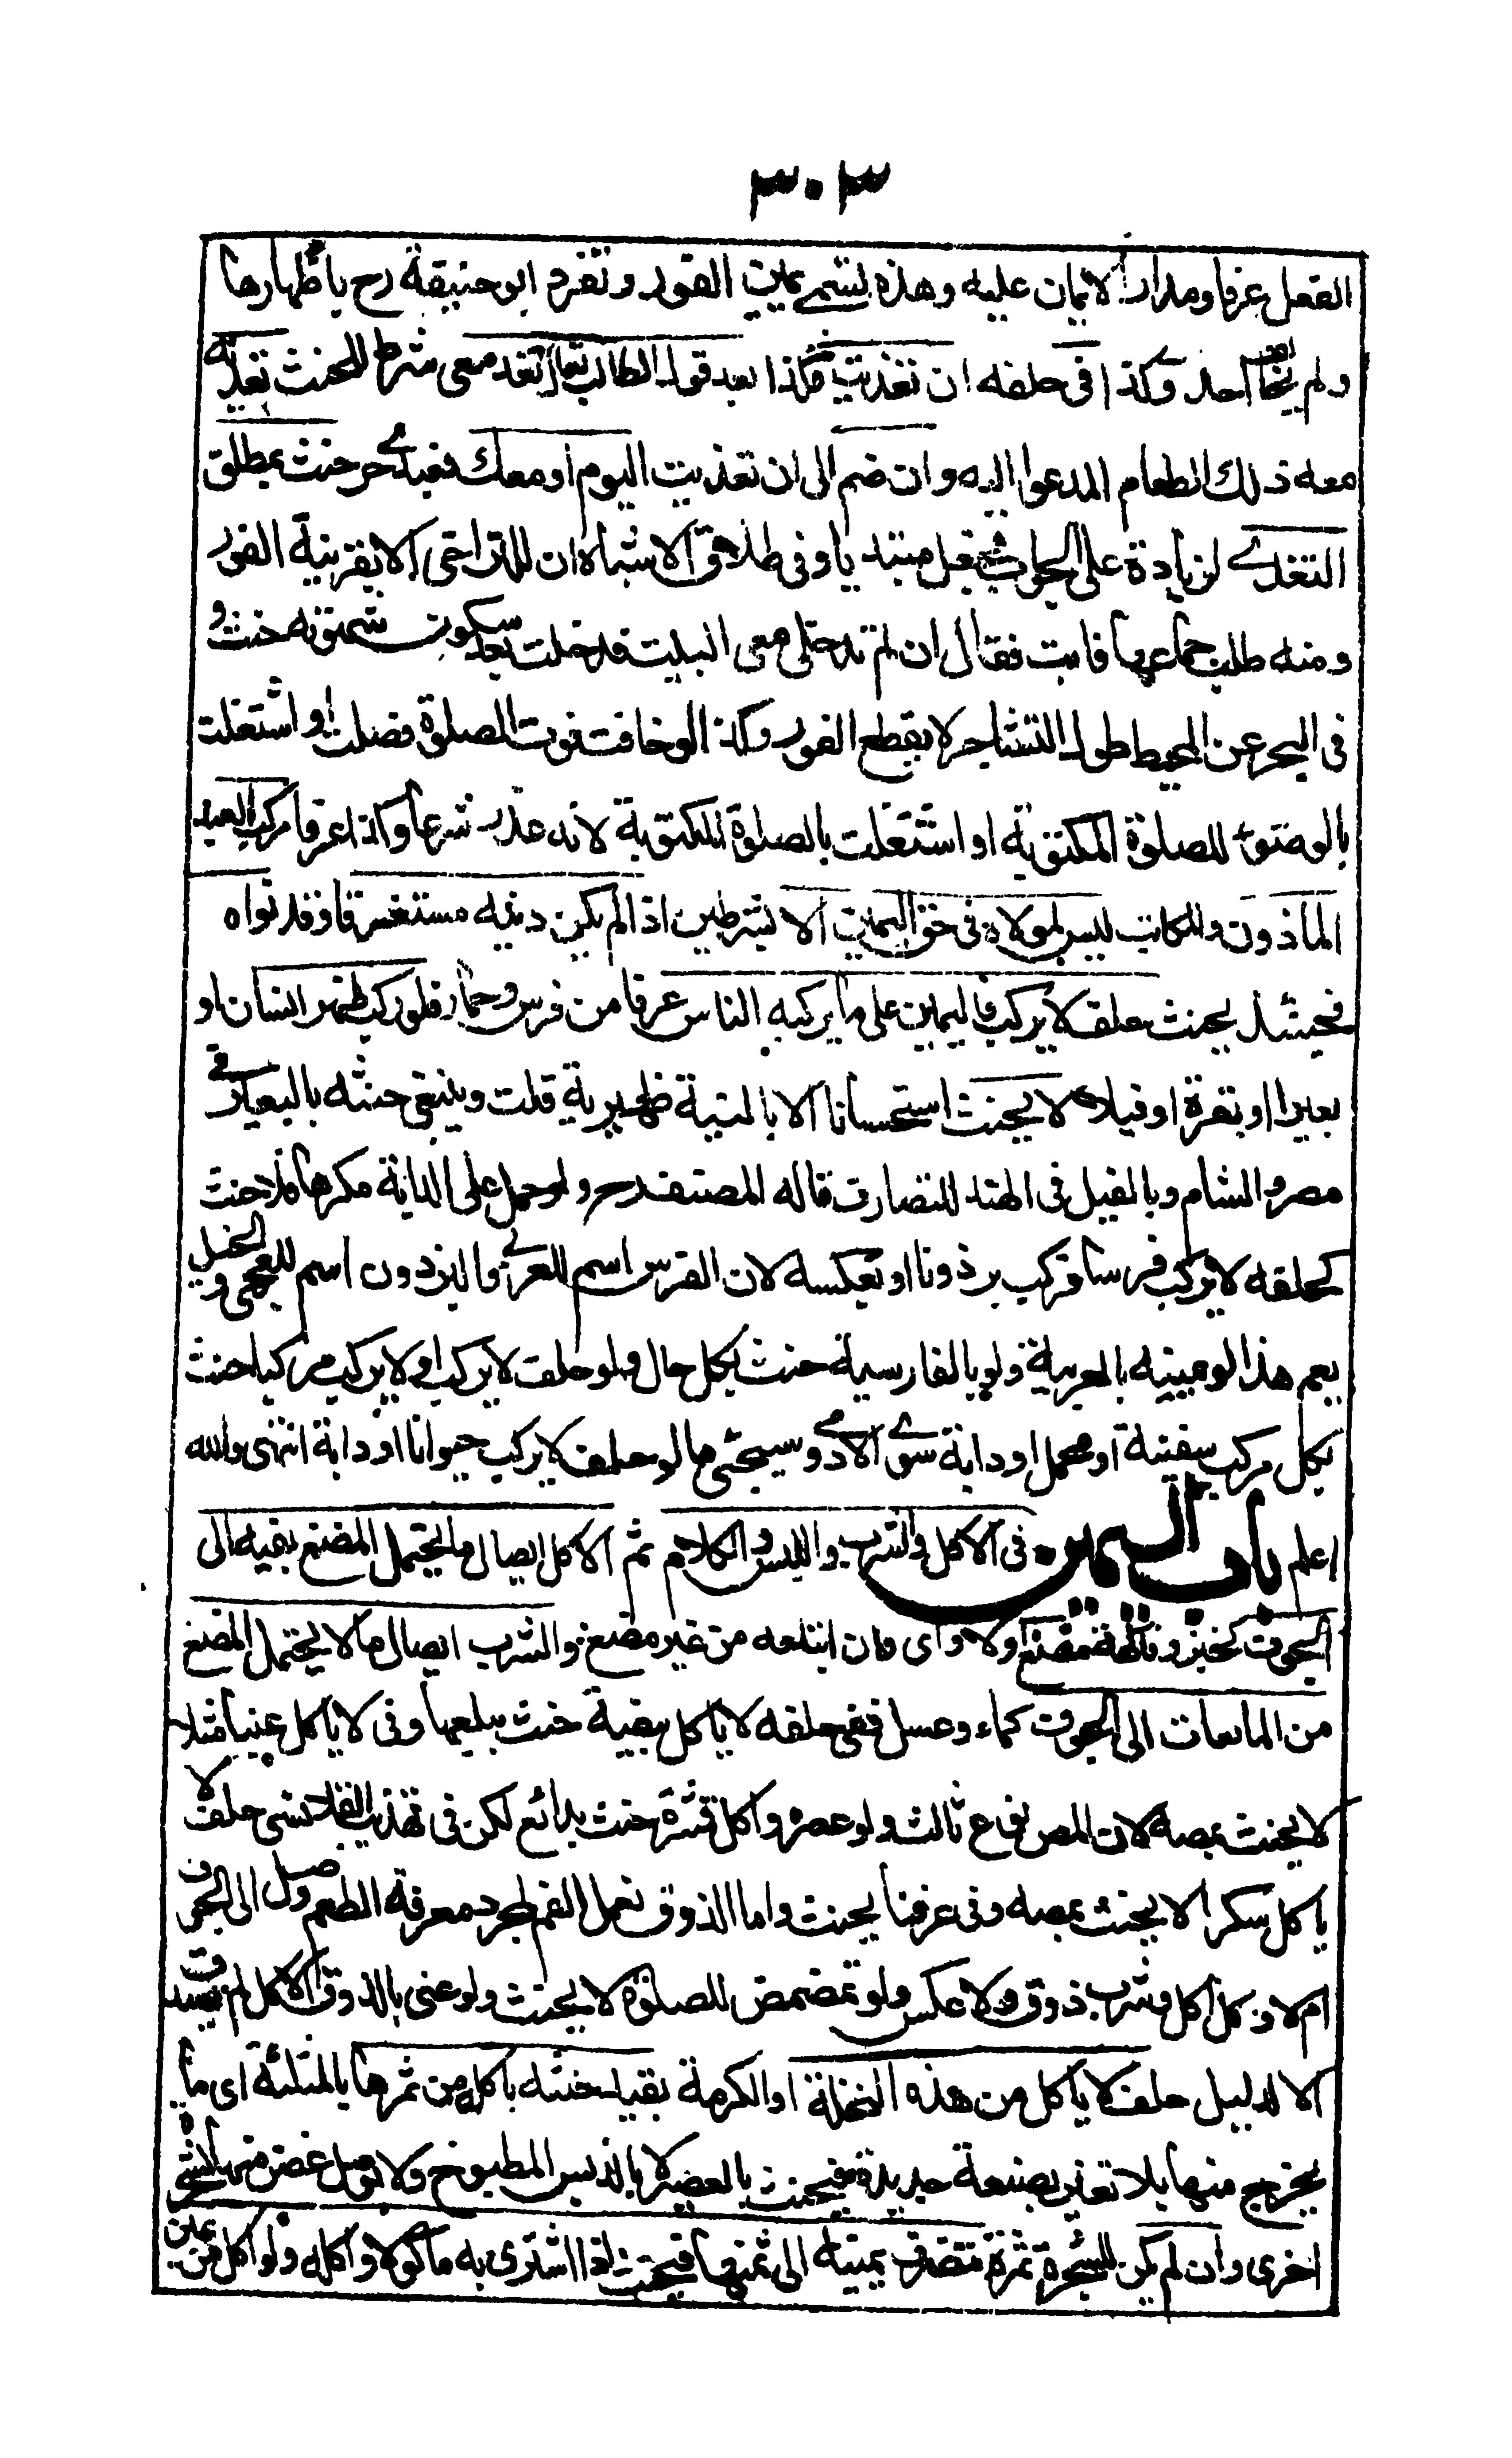 ٣٠٣
الفعل عرفا ومدار الايمان عليه وهذه تسمى يمين الفور وتفرد ابو حنيفة رح باظهارها
ولم يخالفه احد وكذا فى حلفه ان تغذيت فكذا بعد قول الطالب تعال تغد معى شرط للحنث تغديه
معه ذلك الطعام المدعو اليه وان ضم الى ان تغذيت اليوم او معك فعبدى حر حنث بمطلق
التغدى لزيادة على الجواب فجعل مبتديا وفى طلاق الاشباه ان للتراخى الا بقرينة الفور
ومنه طلب جماعها فابت فقال ان لم تدخلى معى البيت فدخلت بعد سكون شهوته حنث و
فى البحر عن المحيط طول التشاجر لا يقطع الفور وكذا لو خافت فوت الصلوة فصلت او اشتغلت
بالوضوء للصلوة المكتوبة او اشتغلت بالصلوة المكتوبة لانه عذر شرعا وكذا عرفا مركب العبد
الماذون والمكاتب ليس لمولاه فى حق اليمين الا بشرطين اذا لم يكن دينه مستغرقا وقد نواه
فحينئذ يحنث حلف لا يركب فاليمين على ما يركبه الناس عرفا من فرس وحمار فلو ركب ظهر انسان او
بعيرا او بقرة او فيلا لا يحنث استحسانا الا بالنية ظهيرية قلت وينبغى حنثه بالبعير فى
مصر والشام وبالفيل فى الهند للتعارف قاله المصنف رح ولو حمل على الدابة مكرها فلا حنث
كحلفه لا يركب فرسا فركب برذونا او بعكسه لان الفرس اسم للعربى والبرذون اسم للعجمى والخيل
يعم هذا لو يمينه بالعربية ولو بالفارسية حنث بكل حال ولو حلف لا يركب او لا يركب مركبا حنث
بكل مركب سفينة او محمل او دابة سوى الادمى وسيجئ ما لو حلف لا يركب حيوانا او دابة انتهى والله
اعلم باب اليمين فى الاكل والشرب واللبس والكلام ثم الاكل ايصال ما يحتمل المضغ بفيه الى
الجوف كخبز وفاكهة مضغ اولا واى وان ابتلعه من غير مضغ والشرب ايصال ما لا يحتمل المضغ
من المايعات الى الجوف كماء وعسل ففى حلفه لا ياكل بيضة حنث ببلعها وفى لا ياكل عنبا مثلا
لا يحنث بمصه لان المص نوع ثالث ولو عصره واكل قشره حنث بدائع لكن فى تهذيب القلانسى حلف لا
ياكل سكرا لا يحنث بمصه وفى عرفنا يحنث واما الذوق فعمل الفم لمجرد معرفة الطعم وصل الى الجوف
ام لا فكل اكل وشرب ذوق ولا عكس ولو تمضمض للصلوة لا يحنث ولو عنى بالذوق الاكل لم يصدق
الا لدليل حلف لا ياكل من هذه النخلة او الكرمة تقيد حنثه باكله من ثمرها بالمثلثة اى ما
يخرج منها بلا تغير بصنعة جديدة فيحنث بالعصير لا بالدبس المطبوخ ولا بوصل غصن منها بشجرة
اخرى وان لم يكن للشجرة ثمرة تنصرف يمينه الى ثمنها فيحنث اذا اشترى به ماكولا واكله ولو اكل من عين